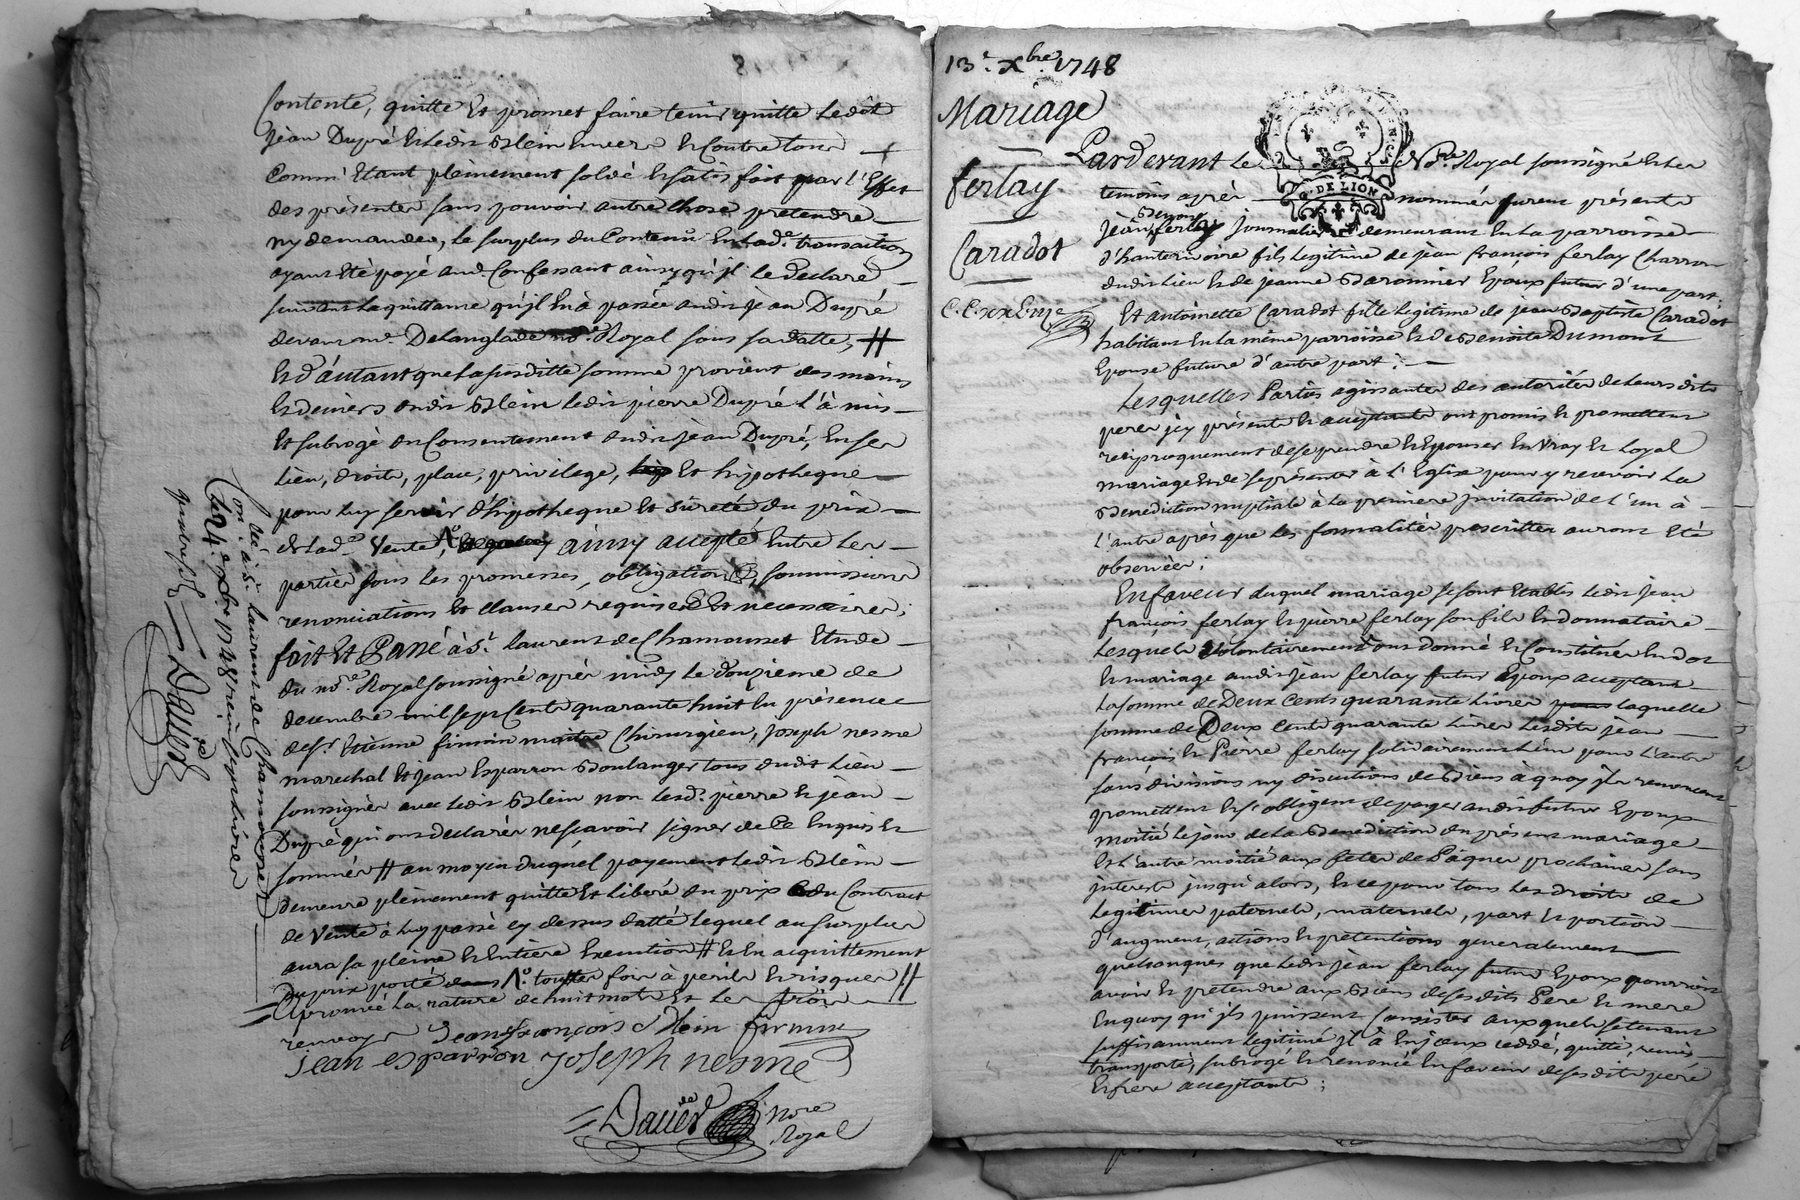 Contente, quitte Et promet faire tenir quitte ledit
jean Dupré Et ledit Blein Envers Et Contre tous
Comm' Etant pleinement soldé Et satisfait par l'Effet
des presentes sans pouvoir autre chose pretendre
ny demander, le surplus du Contenu En lad.e transaction
ayant Eté payé aud. Confessant ainsy qu'jl le declare
suivant la quittance qu'jl En à passée audit jean Dupré
devant me Delanglade no.re Royal sous sa datte, #
Et d'autant que la susditte somme provient des mains
Et deniers dudit Blein ledit pierre Dupré l'à mis
Et subrogé du Consentement dudit jean Dupré, En ses
lieu, droits, place, privilege, Et hipotheque
pour luy servir d'hipotheque Et sureté du prix
de lad.e Vente, ainsy accepté Entre les
parties sous les promesses, obligations, soumissions
renonciations Et clauses requises Et necessaires;
fait Et Passé à St. laurent de Chamousset Etude
du no.re Royal soussigné après midy le douzieme de
decembre mil sept Cents quarante huit En présence
de sr. Etienne firmin maitre Chirurgien, joseph nesme
marechal Et jean Esparron Boulanger tous dudit lieu
soussignés avec ledit Blein non lesd. pierre Et jean
Dupré qui ont declarés ne sçavoir signer de Ce Enquis Et
sommés # au moyen duquel payement ledit Blein
demeure pleinement quitte Et liberé du prix du Contract
de Vente à luy passé cy dessus datté lequel au surplus
aura sa pleine Et Entiere Execution # Et En acquittement
du prix porté touttes fois à perils Et risques //
Aprouvé la rature de huit mots Et les trois
renvoys Jean françois Blein firmin
jean esparron Joseph nesme
Dauer no.re
Royal
Con.lé à St. laurent de Chamousset
le 24.e xbre 1748
13.e xbre 1748
Mariage
ferlay
Caradot
Pardevant le no.re Royal soussigné Et les
temoins après nommés furent présents
jean ferlay journalier demeurant En la parroisse
d'hauterivoire fils legitime de jean françois ferlay Charron
dudit lieu Et de jeanne Baronnier Epoux futur d'une part;
Et antoinette Caradot fille legitime de jean Baptiste Caradot
habitant En la même parroisse Et de Benoite Dumont
Epouse future d'autre part;
Lesquelles Parties agissantes des autorités de leurs dits
peres jcy présents Et acceptants ont promis Et promettent
reciproquement de se prendre Et Epouser En vray Et loyal
mariage Et de se présenter à l'Eglise pour y recevoir la
Benediction nuptiale à la premiere jnvitation de l'un à
l'autre après que les formalités prescrittes auront Eté
observées;
En faveur duquel mariage se sont Etablis ledit jean
françois ferlay Et pierre ferlay son fils Et donnataire
lesquels volontairement ont donné Et Constitués En dot
Et mariage audit jean ferlay futur Epoux acceptant
la somme de Deux Cents quarante livres laquelle
somme de Deux Cents quarante livres lesdits jean
françois Et Pierre ferlay solidairement l'un pour l'autre
sans divisions ny discutions de Biens à quoy jls renoncent
promettent Et s'obligent de payer audit futur Epoux
moitié le jour de la Benediction du présent mariage
Et l'autre moitié aux fetes de Pâques prochaines sans
jnterests jusqu'alors, Et ce pour tous les droits de
legitimes paternels, maternels, part Et portion
d'augment, actions Et pretentions generalement
quelconques que ledit jean ferlay futur Epoux pourroit
avoir Et pretendre aux Biens de ses dits Pere Et mere
En quoy qu'jls puissent Consister auxquels se tenant
suffisamment legitimé jl à En jceux ceddé, quitté, remis
transporté, subrogé Et renoncé En faveur de ses dits pere
Et frere acceptants;